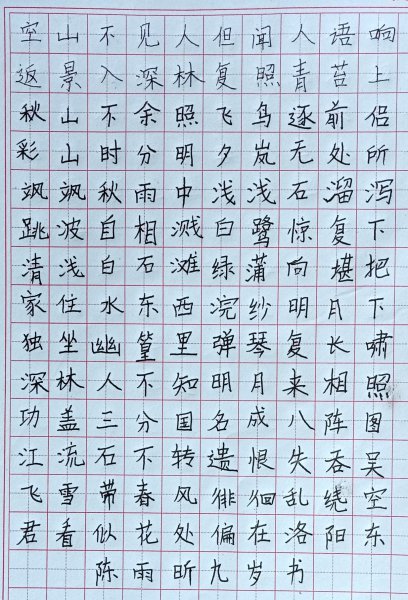 空山不见人但闻人语响
返景入深林复照青苔上
秋山不余照飞鸟逐前侣
彩山时分明夕岚无处所
飒飒秋雨中浅浅石溜泻
跳波自相溅白鹭惊复下
清浅白石滩绿蒲向堪把
家住水东西浣纱明月下
独坐幽篁里弹琴复长啸
深林人不知明月来相照
功盖三分国名成八阵图
江流石不转遗恨失吞吴
飞雪带春风徘徊乱绕空
君看似花处偏在洛阳东
陈雨昕九岁书